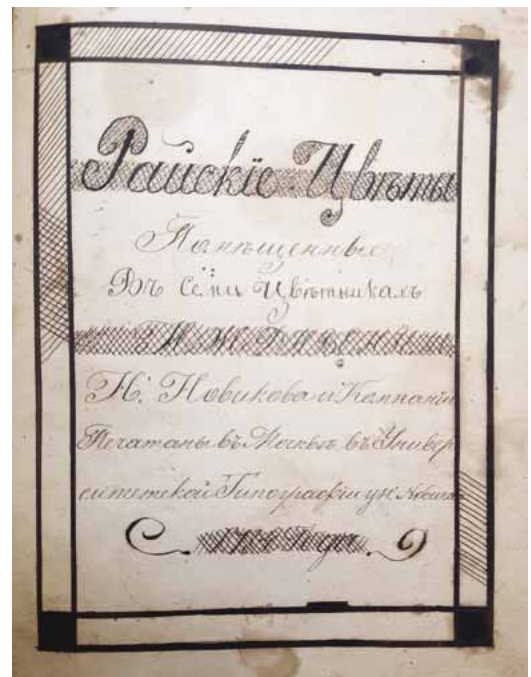 Райскіе Цвѣты
Помѣщенные
Въ Семи Цвѣтникахъ
ИЖДИВЕНИ
Н: Новикова и Компаніи
Печатаны въ Москвѣ въ Универ
ситетской Типографіи у Н. Новикова
Года